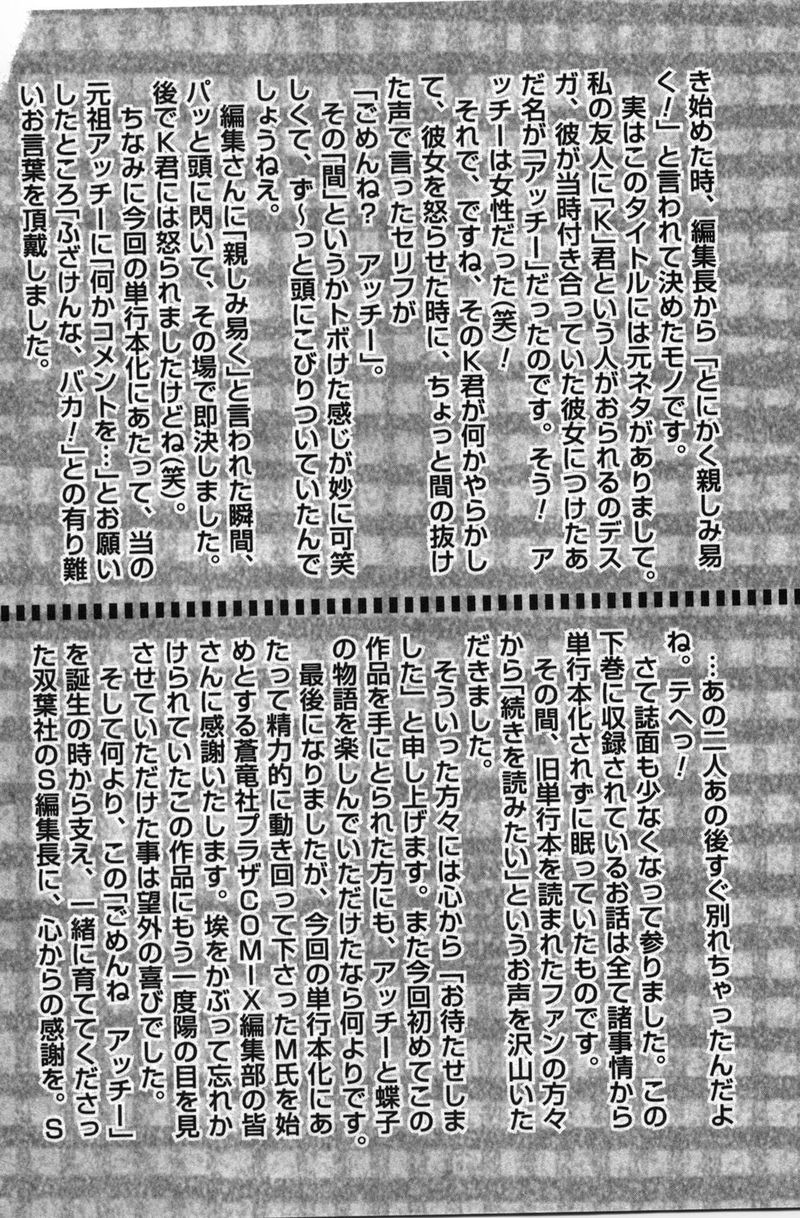 き始めた時、編集長から「とにかく親しみ易
く！」と言われて決めたモノです。
実はこのタイトルには元ネタがありまして。
私の友人に「K」君という人がおられるのデス
ガ、彼が当時付き合っていた彼女につけたあ
だ名が「アッチー」だったのです。そう！　ア
ッチーは女性だった（笑）！
それで、ですね、そのK君が何かやらかし
て、彼女を怒らせた時に、ちょっと間の抜け
た声で言ったセリフが
「ごめんね？　アッチー」。
その「間」というかトボけた感じが妙に可笑
しくて、ず〜っと頭にこびりついていたんで
しょうねえ。
編集さんに「親しみ易く」と言われた瞬間、
パッと頭に閃いて、その場で即決しました。
後でK君には怒られましたけどね（笑）。
ちなみに今回の単行本化にあたって、当の
元祖アッチーに「何かコメントを…」とお願い
したところ「ふざけんな、バカ！」との有り難
いお言葉を頂戴しました。
…あの二人あの後すぐ別れちゃったんだよ
ね。テヘっ！
さて誌面も少なくなって参りました。この
下巻に収録されているお話は全て諸事情から
単行本化されずに眠っていたものです。
その間、旧単行本を読まれたファンの方々
から「続きを読みたい」というお声を沢山いた
だきました。
そういった方々には心から「お待たせしま
した」と申し上げます。また今回初めてこの
作品を手にとられた方にも、アッチーと蝶子
の物語を楽しんでいただけたなら何よりです。
最後になりましたが、今回の単行本化にあ
たって精力的に動き回って下さったM氏を始
めとする蒼竜社プラザCOMIX編集部の皆
さんに感謝いたします。埃をかぶって忘れか
けられていたこの作品にもう一度陽の目を見
させていただけた事は望外の喜びでした。
そして何より、この「ごめんね　アッチー」
を誕生の時から支え、一緒に育ててくださっ
た双葉社のS編集長に、心からの感謝を。S